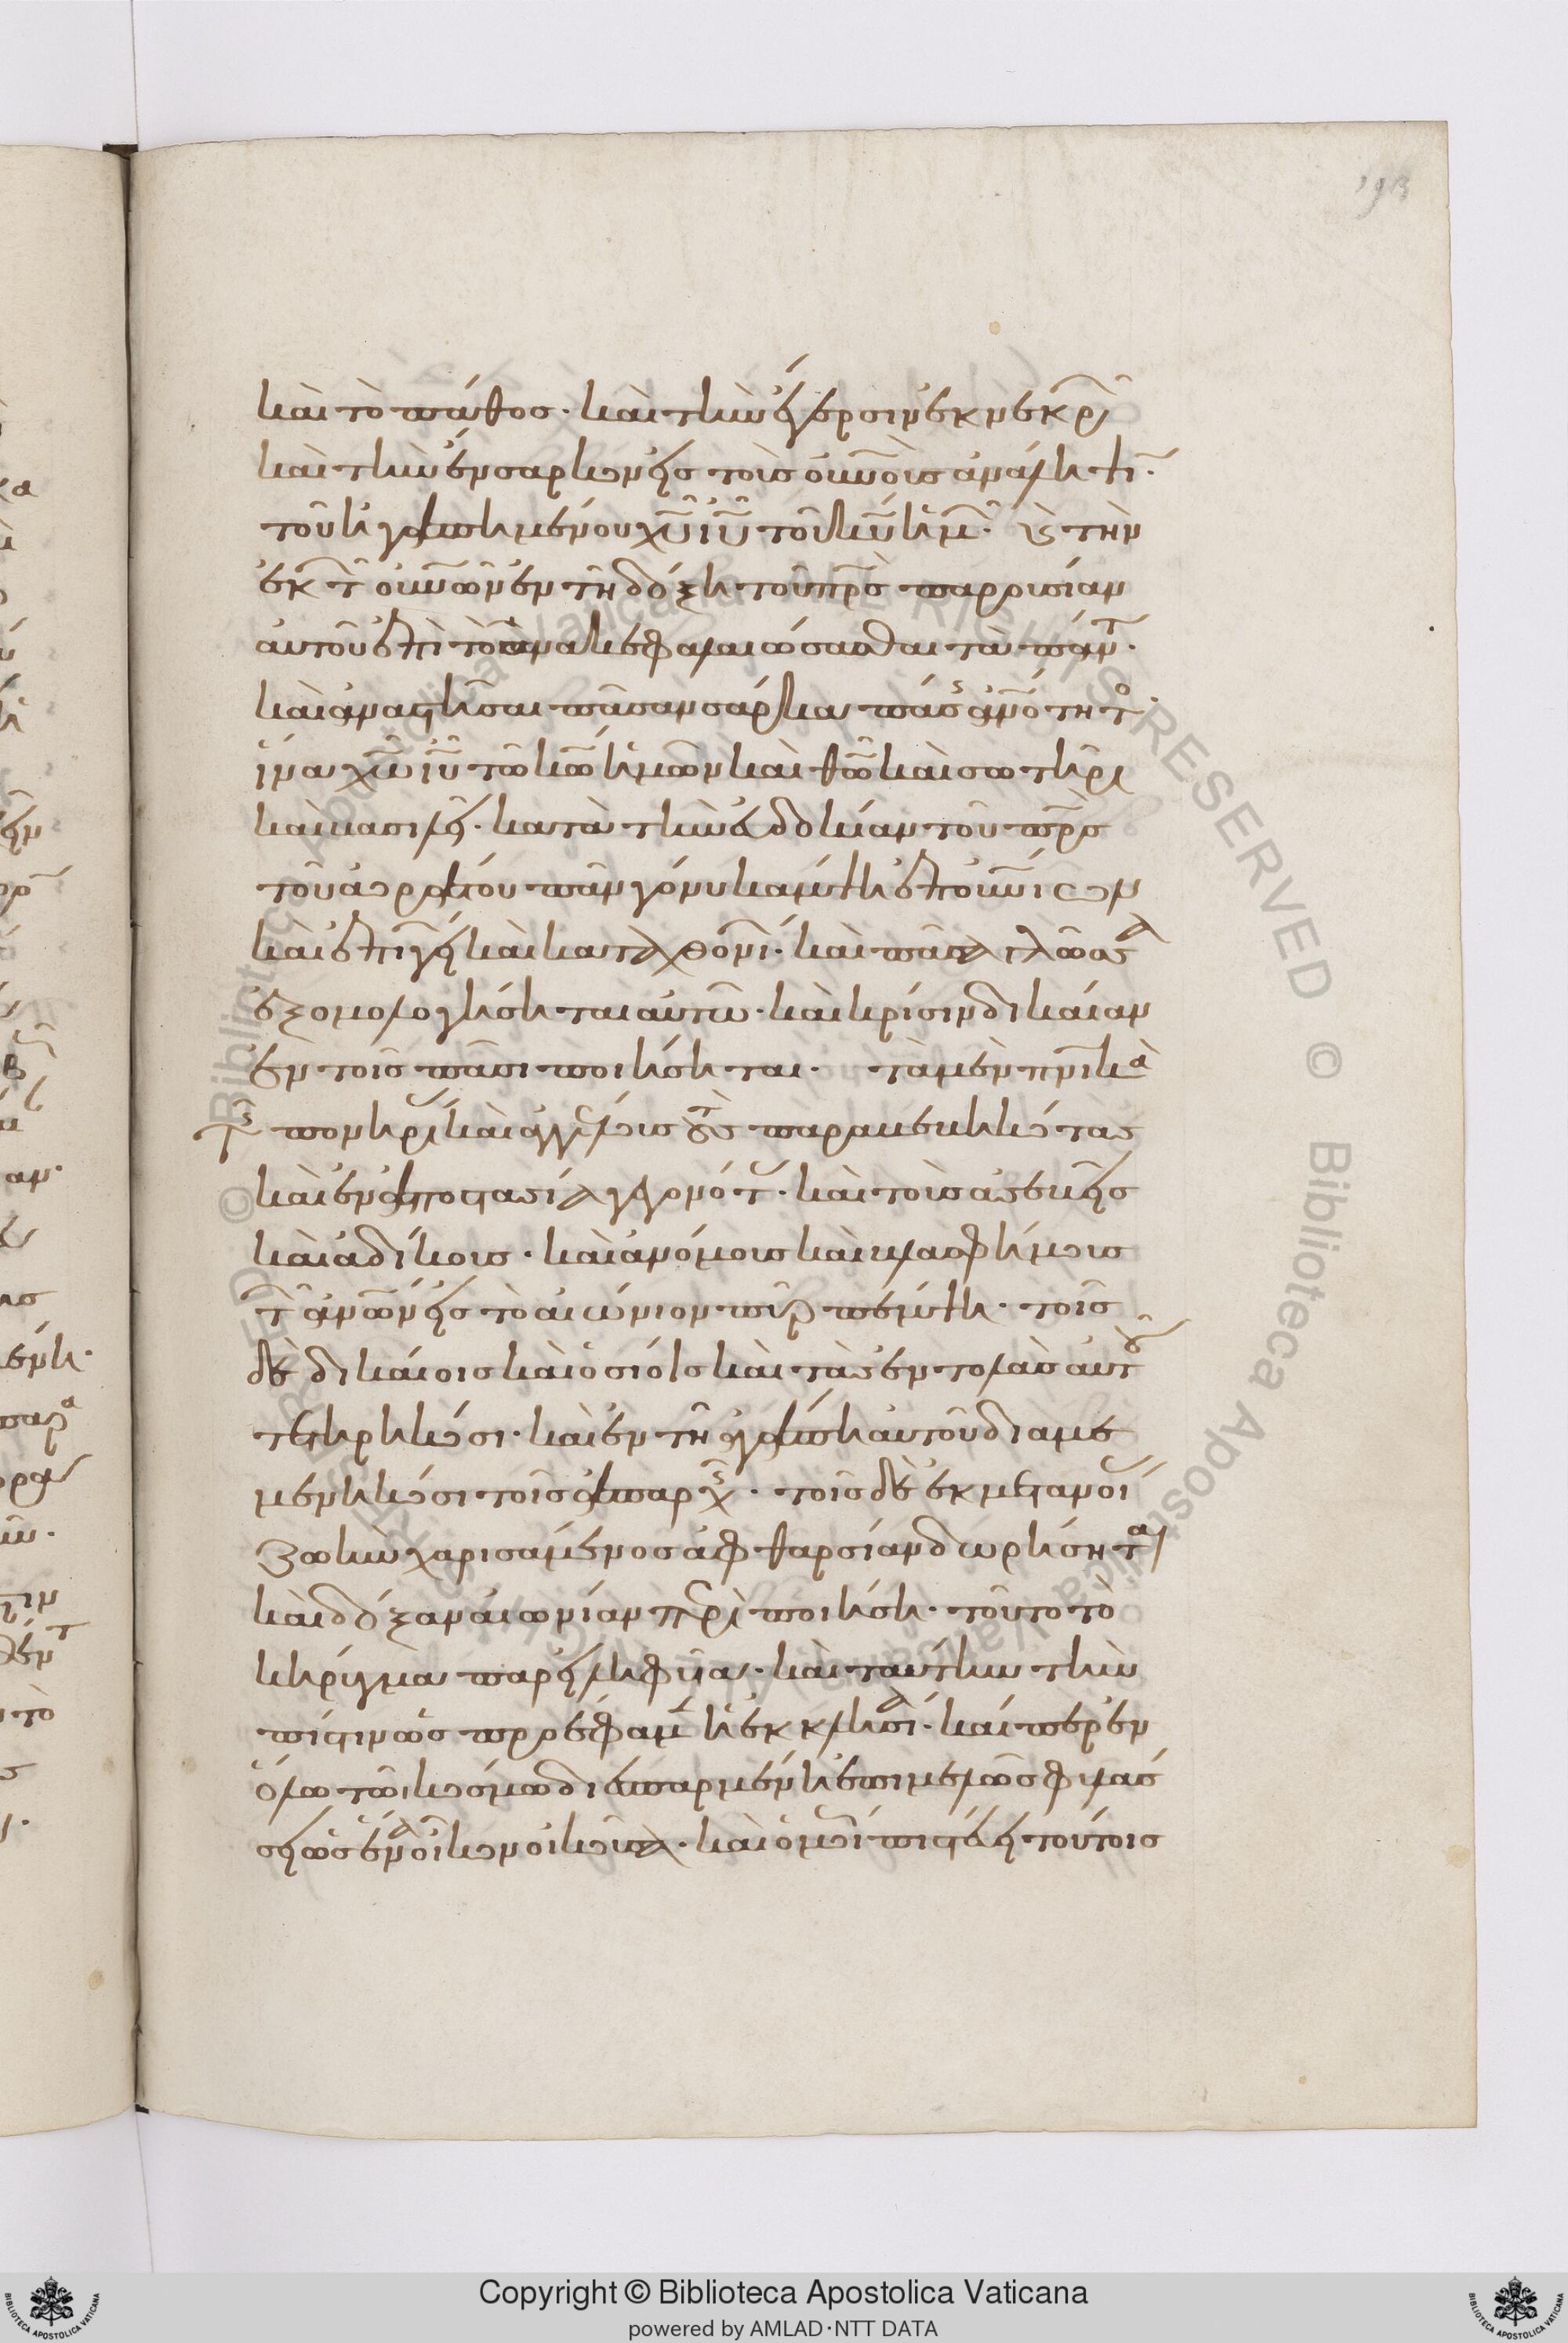 193
καὶ τὸ πάθος· καὶ τὴν ἔγερσιν ἐκ νεκρῶ
καὶ τὴν ἔνσαρκον εἰς τοὺς οὐνοὺς ἀνάληψιν
τοῦ ἠγαπημένου χυ ιυ τοῦ κυ ἡμ· καὶ τὴν
ἐκ τῶν οὐνῶν ἐν τῇ δόξῃ τοῦ πρς παρουσίαν
αὐτοῦ ἐπὶ τὸ ἀνακεφαλαιώσασθαι τὰ πάντ·
καὶ ἀναστῆσαι πᾶσαν σάρκα πάσης ἀνότητο·
ἵνα χω ιυ τῶ κω ἡμῶν καὶ θω καὶ σωτῆρι
καὶ βασιλεῖ· κατὰ τὴν εὐδοκίαν τοῦ πρς
τοῦ ἀοράτου πᾶν γόνυ κάμψη ἐπουνίων
καὶ ἐπιγείων καὶ καταχθονί· καὶ πᾶσα γλῶσσα
ἐξομολογήσηται αὐτῶ· καὶ κρίσιν δικαίαν
ἐν τοῖς πᾶσι ποιήσηται· τὰ μὲν πνικὰ
τῆς πονηρίας καὶ ἀγγέλους τοὺς παραβεβηκότας
καὶ ἐν ἀποστασία γεγονότας· καὶ τοὺς ἀσεβεῖς
καὶ ἀδίκους· καὶ ἀνόμους καὶ βλασφήμους
τῶν ἀνων εἰς τὸ αἰώνιον πῦρ πέμψη· τοῖς
δὲ δικαίοις καὶ ὁσίοις καὶ τὰς ἐντολὰς αὐτοῦ
τετηρηκόσι· καὶ ἐν τῇ ἀγάπη αὐτοῦ διαμε
μενηκόσι τοῖς ἀπαρχῆς· τοῖς δὲ ἐκ μετανοί
ζωὴν χαρισάμενος ἀφθαρσίαν δωρήσηται
καὶ δόξαν αἰωνίαν περιποιήση· τοῦτο τὸ
κήρυγμα παρειληφυῖα· καὶ ταύτην τὴν
πίστιν ὡς προέφαμεν ἡ ἐκκλησία· καίπερ ἐν
ὅλω τῶ κόσμω διεσπαρμένη ἐπιμελῶς φυλάσ
σει ὡς ἕνα οἶκον οἰκοῦσα· καὶ ὁμοί πιστεύει τούτοις
Copyright © Biblioteca Apostolica Vaticana
powered by AMLAD·NTT DATA